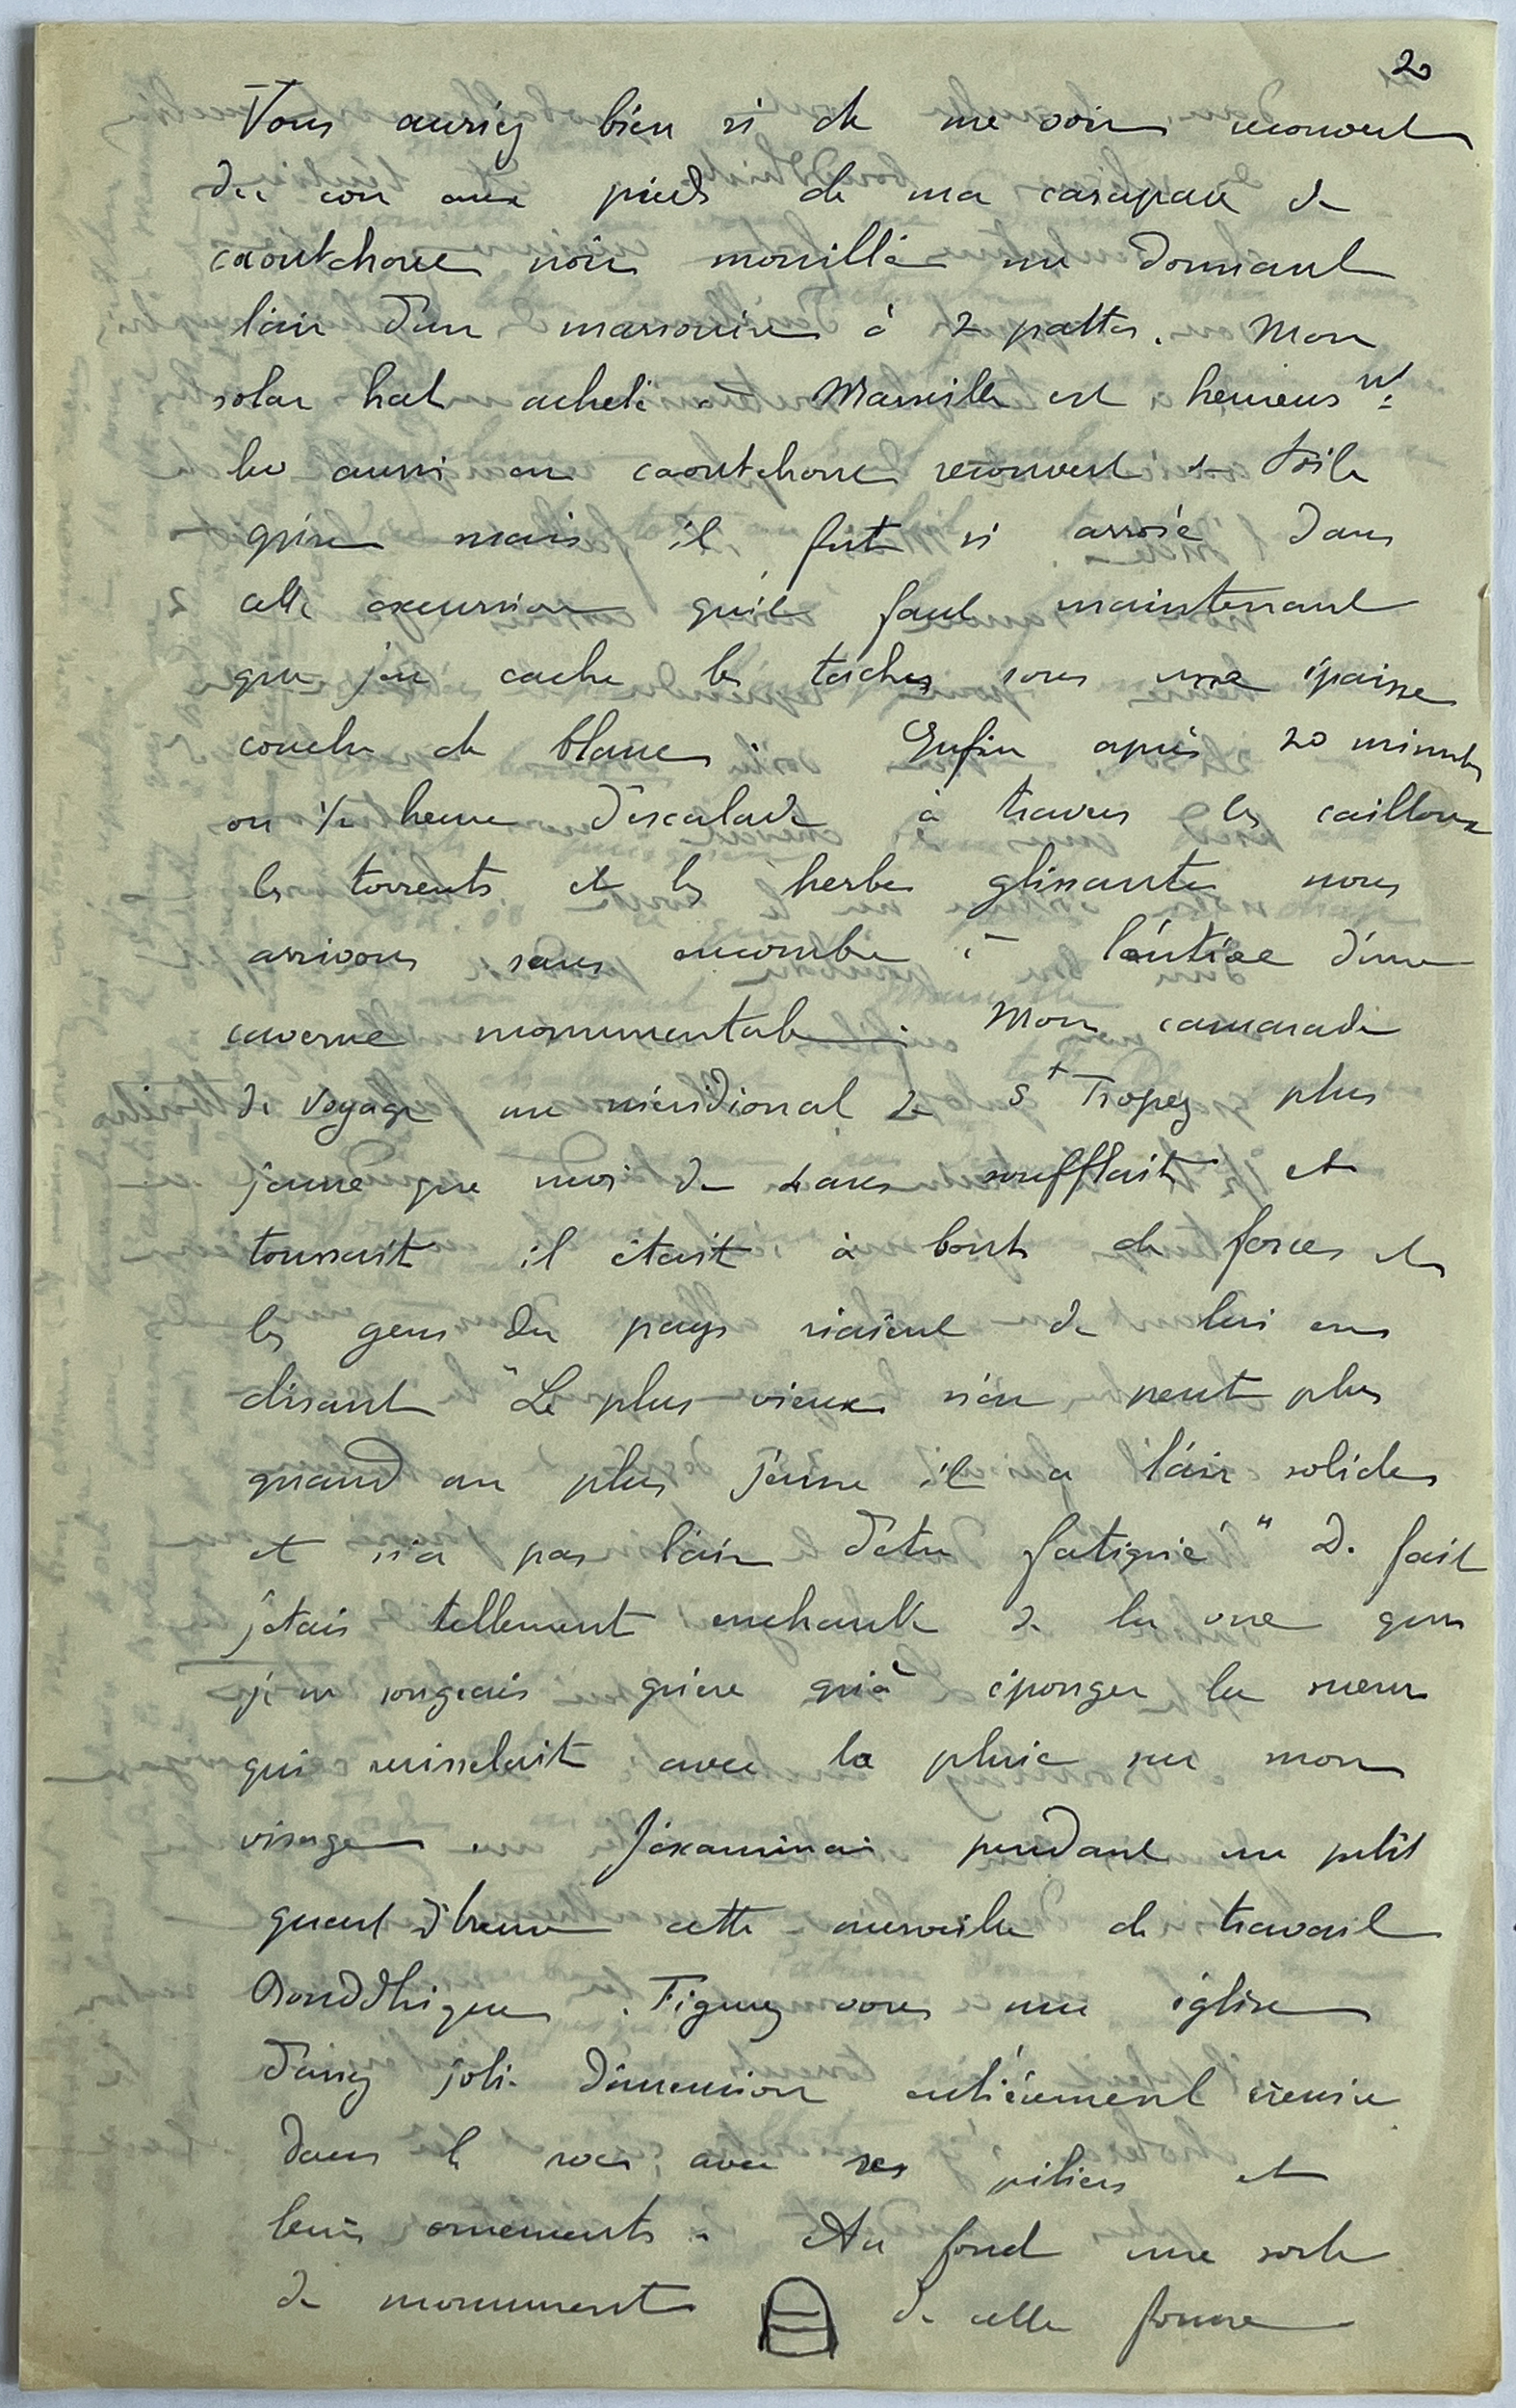 20
Vous auriez bien ri de me voir recouvert
du cou aux pieds de ma carapace de
caoutchouc noir mouillé me donnant
l'air d'un marsouin à 2 pattes. Mon
solar hat acheté à Marseille est heureus nt
lui aussi en caoutchouc recouvert de toile
grise mais il fut si arrosé dans
cette excursion qu'il faut maintenant
que j'en cache les taches sous une épaisse
couche de blanc. Enfin après 20 minutes
ou 1/2 heure d'escalade à travers les cailloux
les torrents et les herbes glissantes nous
arrivons sans encombre à l'entrée d'une
caverne monumentale. Mon camarade
de voyage un méridional de St Tropez plus
jeune que moi de 4 ans soufflait et
toussait il était à bout de forces et
les gens du pays riaient de lui en
disant "Le plus vieux n'en peut plus
quand au plus jeune il a l'air solide
et n'a pas l'air d'être fatigué" De fait
j'étais tellement enchanté de la vue que
je ne songeais guère qu'à éponger la sueur
qui ruisselait avec la pluie sur mon
visage. J'examinai pendant un petit
quart d'heure cette merveille de travail
Bouddhique. Figurez vous une église
d'assez jolie dimension entièrement creusée
dans le roc avec ses piliers et
leurs ornements. Au fond une sorte
de monument de cette forme